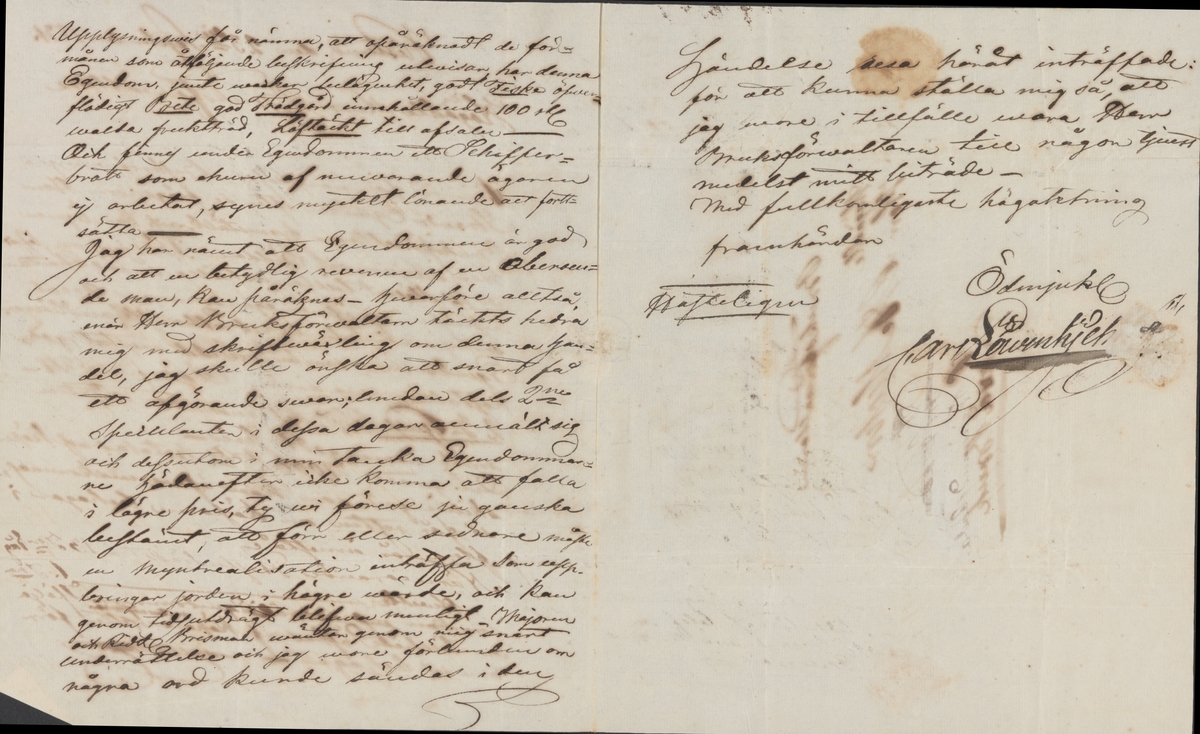 Upplysningsvis får nämna, att oparäknadt de för-
måner som åtföljande beskrifning utvisar har denna
Egendom, jemte vacker belägenhet, godt Fiske öfver-
flödigt Bete god Trädgård innehållande 100 st
valda fruktträd, Löftäckt till afsalu —
Och finns under Egendommen ett Schiffer-
brott som ehuru af nuvarande ägaren
ej arbetat, synes mycket lönande att fort-
sätta —
Jag har nämt att Egendommen är god
och att en betydlig revenu af en
de man, kan påräknas — hvarföre alltså,
när Herr Bruksförvaltarn täckts hedra
mig med skriftvexling om denna han-
del, jag skulle önska att snart få
ett afgörande svar; emedan dels 2ne
Speculanter i dessa dagar anmält sig
och dessutom i min tanka Egendommar-
ne hädanefter icke komma att falla
i lägre pris, ty vi förese ju ganska
bestämt, att förr eller sednare måste
en Myntrealisation inträffa som upp-
bringar jorden i högre värde, och kan
genom tidsutdrägt blifva menligt. Majoren
och Ridd. Brisman väntar genom mig snart
underrättelse och jag vore förbunden om
några ord kunde sändas i den
händelse resa häråt inträffade:
för att kunna ställa mig så, att
jag vore i tillfälle vara Herr
Bruksförvaltaren till någon tjenst
medelst mitt biträde —
Med fullkomligaste högaktning
framhärdar
Ödmjukt
Hasteligen
Carl Löwenhjelm